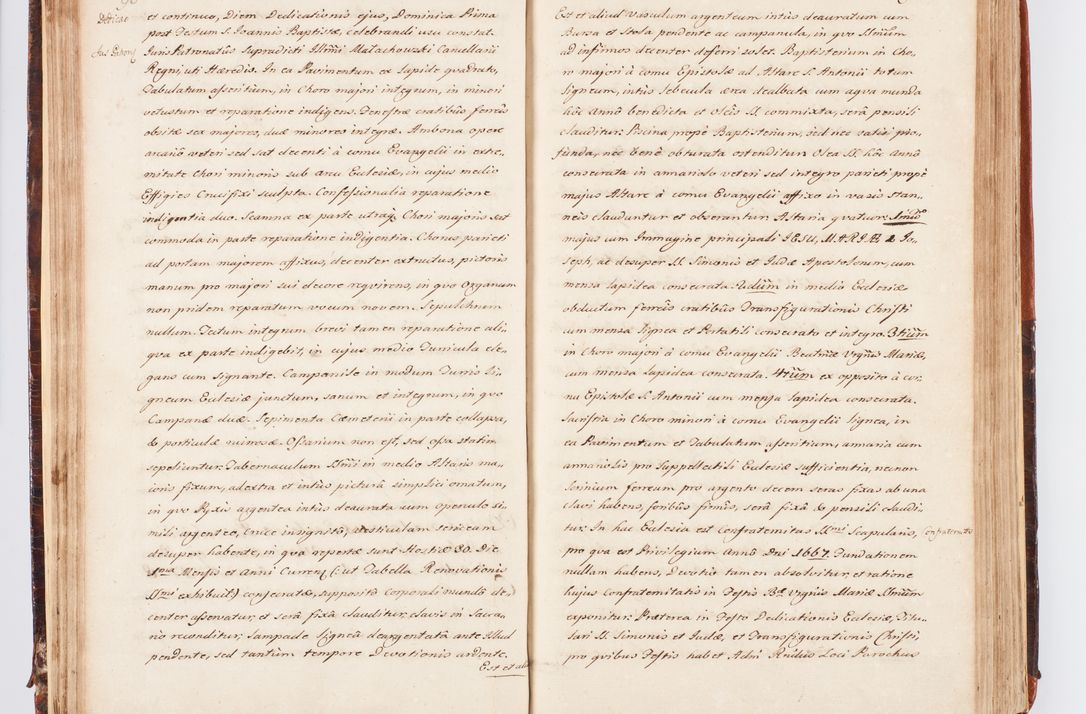 Dedicao
Jus Patron9
et continuo, Diem Dedicationis ejus, Dominica Prima
post Festum S. Joannis Baptistæ, celebrandi usu constat.
Juris Patronatûs Supradicti Illmi Małachowski Cancellarii
Regni, uti Hæredis. In ea Pavimentum ex Lapide quadrato,
Tabulatum asseritium, in Choro majori integrum, in minori
vetustum et reparatione indigens. Fenestræ cratibus ferreis
obsitæ sex majores, duæ minores integræ. Ambona opere
arcario veteri sed sat decenti à cornu Evangelii in extre„
mitate Chori minoris sub arcu Ecclesiæ, in cujus medio
Effigies Crucifixi sculpta. Confessionalia reparatione
indigentia duo. Scamna ex parte utraq Chori majoris sat
commoda in parte reparatione indigentia. Chorus parieti
ad portam majorem affixus, decenter extructus, pictoris
manum pro majori sui decore requirens, in quo Organum
non pridem reparatum vocum novem. Sepulchrum
nullum. Tectum integrum brevi tamen reparatione ali„
qua ex parte indigebit, in cujus medio Turricula ele„
gans cum Signante. Campanile in modum Turris Li„
gneum Ecclesiæ junctum, sanum et integrum, in quo
Campanæ duæ. Sepimenta Cæmeterii in parte collapsa,
& porticulæ ruinosæ. Ossarium non est, sed ossa statim
sepeliuntur. Tabernaculum SSmi in medio Altaris ma„
joris fixum, ad extra et intus picturâ simplici ornatum,
in quo Pyxis argentea intus deaurata cum operculo si„
mili argenteo, Cruce insignito, vesticulam sericeam
desuper habente, in qua repertæ sunt Hostiæ 30. Die
1ma Mensis et Anni Curren (: ut Tabella Renovationis
SSmi exhibuit) consecratæ, supposito corporali mundo de„
center asservatur, et serâ fixâ clauditur, clavis in Sacra„
rio reconditur, Lampade Ligneâ deargentatâ ante Illud
pendente, sed tantùm tempore Devotionis ardente.
Est et aliu
Est et aliud Vasculum argenteum intus deauratum cum
Bursa et Stola pendente ac campanula, in quo SSmum
ad infirmos decenter deferri solet. Baptisterium in Cho„
ro majori à cornu Epistolæ ad Altare S. Antonii totum
Ligneum, intus Lebecula ærea dealbata cum aqua munda
hôc anno benedicta et Oleis SS. commixta, serâ pensili
clauditur. Piscina propè Baptisterium, sed nec satis pro„
funda, nec benè obturata ostenditur. Olea SS. hôc anno
consecrata in armariolo veteri sed integro parieti propè
majus Altare à cornu Evangelii affixo in vasis stan„
neis clauduntur et obserantur. Altaria quatuor: Imum
majus cum Immagine principali JESU, MARIÆ, & Jo„
seph, ac desuper SS. Simonis et Judæ Apostolorum, cum
mensa lapidea consecrata. 2dum in medio Ecclesiæ
obductum ferreis cratibus Transfigurationis Christi
cum mensa Lignea et Portatili consecrato et integro. 3tium
in Choro majori à cornu Evangelii Beatæ Virginis Mariæ,
cum mensa Lapidea consecrata. 4tum ex opposito à cor„
nu Epistolæ S. Antonii cum mensa Lapidea consecrata.
Sacristia in Choro minori à cornu Evangelii Lignea, in
ea Pavimentum et Tabulatum asseritium, armaria cum
armariolis pro Suppellectili Ecclesiæ sufficientia, necnon
Scrinium ferreum pro argento decem seras fixas ab una
clavi habens, foribus firmis, serâ fixâ & pensili claudi„
tur. In hac Ecclesia est Confraternitas SSmi Scapularis,
Confraternitas
pro qua est Privilegium Anno Dni 1667. Fundationem
nullam habens, Devotio tamen absolvitur, et ratione
hujus Confraternitatis in Festis Bæ Virginis Mariæ SSmum
exponitur. Præterea in Festo Dedicationis Ecclesiæ, Titu„
lari SS. Simonis et Judæ, et Transfigurationis Christi,
pro quibus Festis habet Adm Rndus Loci Parochus